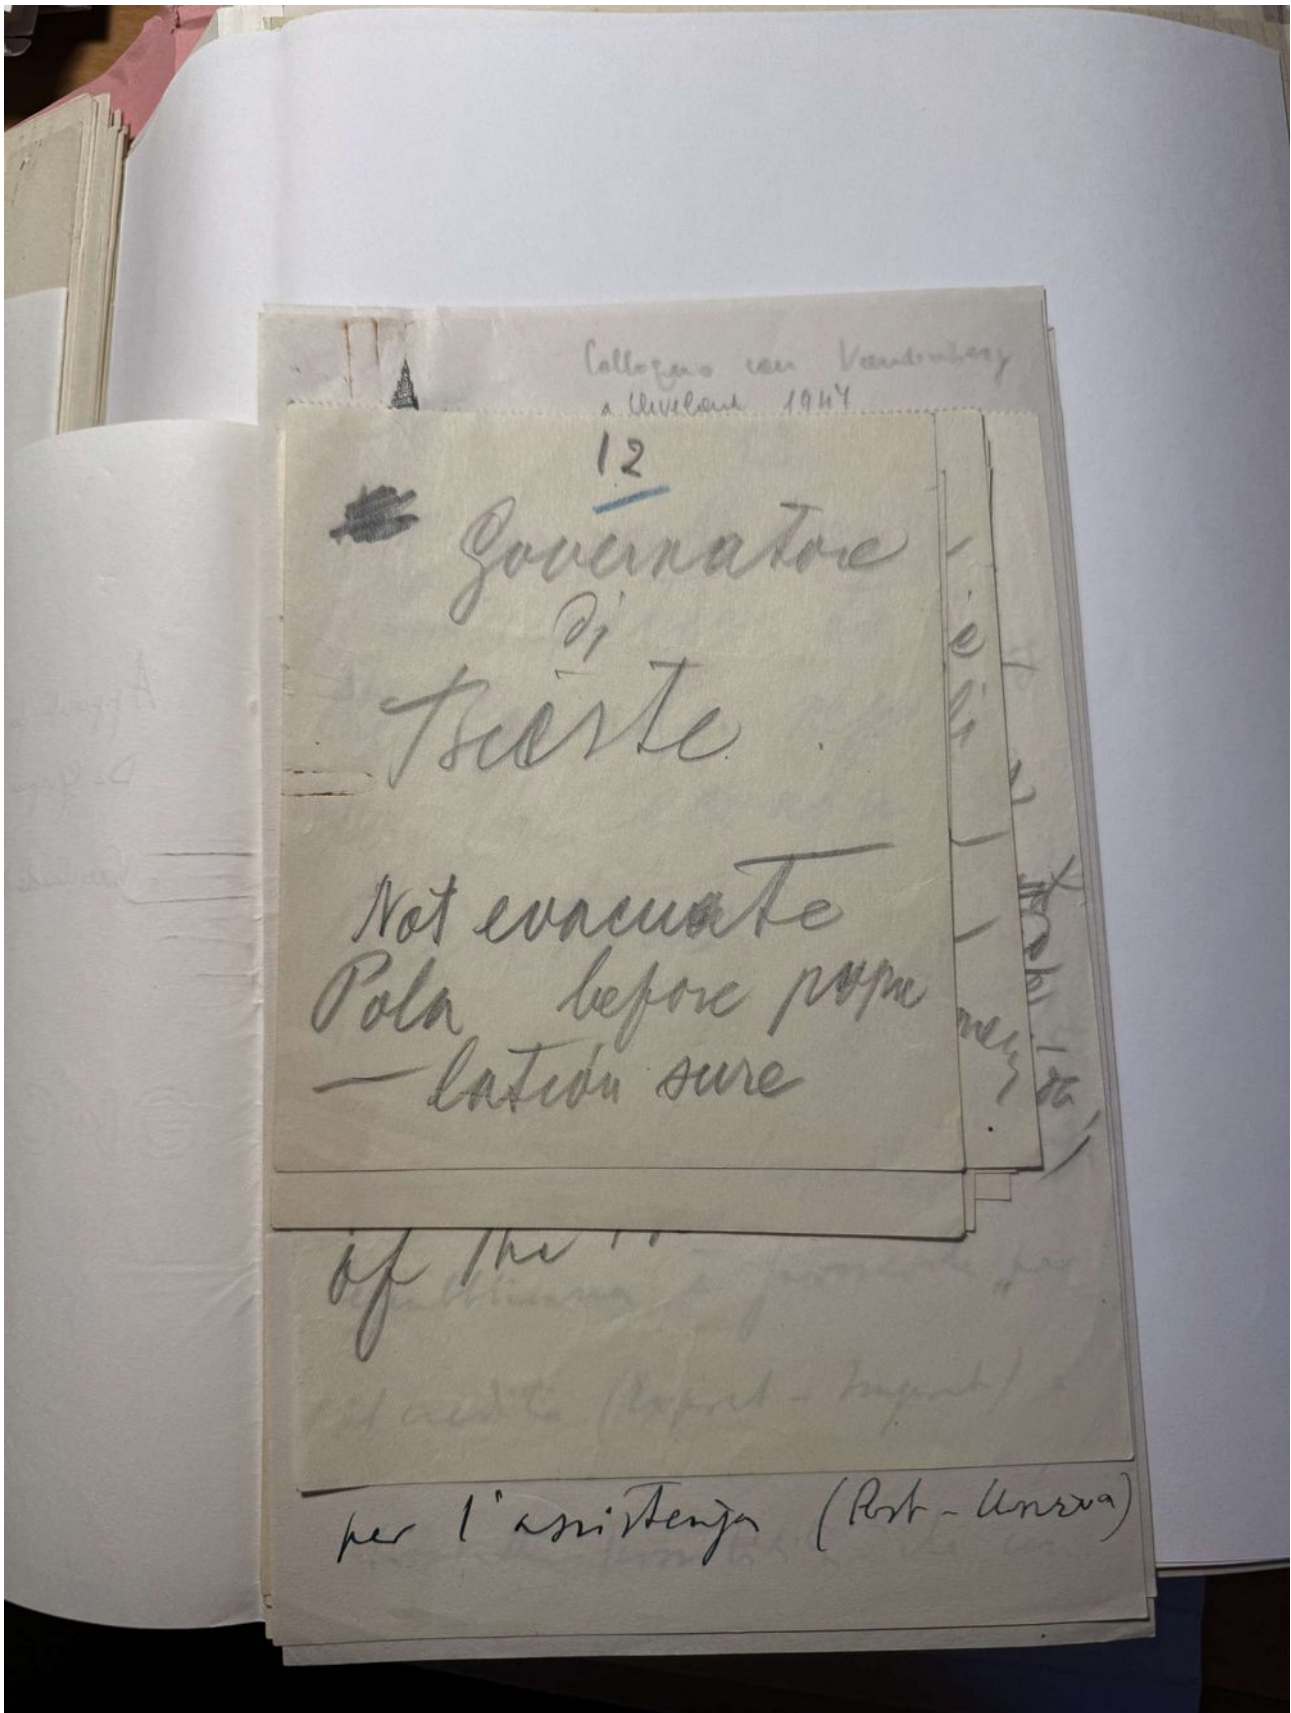 Colloquio con Vandenberg
a Cleveland 1947
12
Governatore
di
Trieste
Not evacuate
Pola before popu
— lation sure
of the
(Export - Import)
per l'assistenza (Post-Unrra)